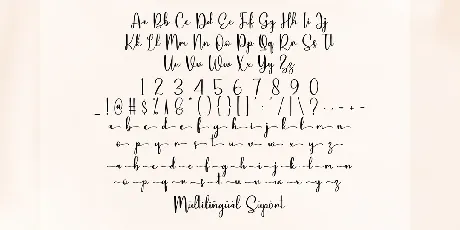 Aa Bb Cc Dd Ee Ff Gg Hh Ii Jj
Kk Ll Mm Nn Oo Pp Qq Rr Ss Tt
Uu Vv Ww Xx Yy Zz
1 2 3 4 5 6 7 8 9 0
_ ! @ # $ % ^ & * ( ) { } [ ] " ' / | \ ? . . - + -
a b c d e f g h i j k l m n
o p q r s t u v w x y z
a b c d e f g h i j k l m n
o p q r s t u v w x y z
Multilingual Suport